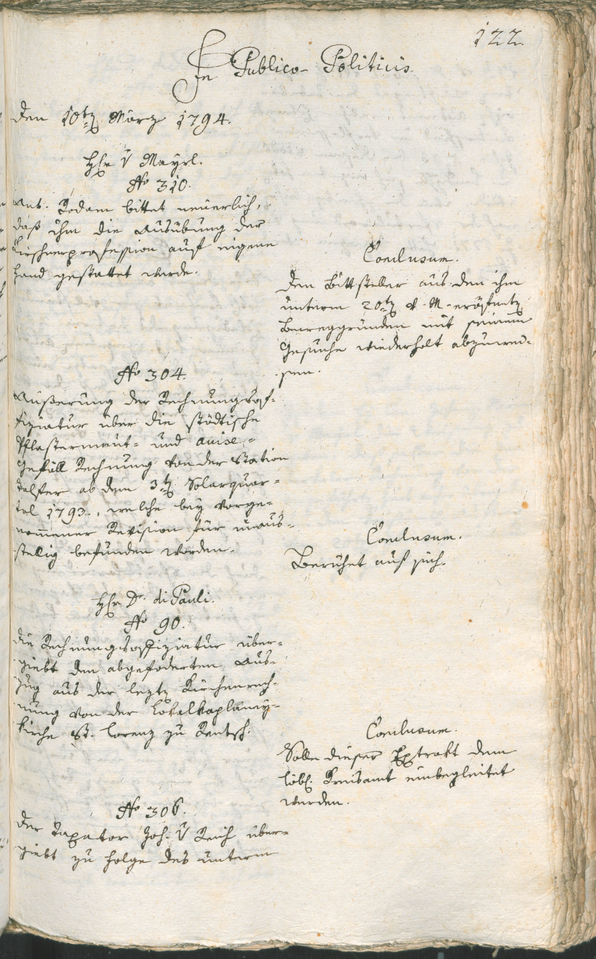 122
In Publico-Politicis.
Den 10tn März 1794.
H v Mayrl.
No 310.
Ant. Todam bittet neuerlich,
daß ihm die Ausübung der
Tischnerprofession auf eigene
Hand gestattet werde.
Conclusum.
Den Bittsteller aus den ihm
unterm 20tn d. M. eröfneten
Beweggründen mit seinem
Gesuche wiederholt abzuwei-
sen.
No 304.
Äußerung der Rechnungsof-
fiziatur über die städtische
Pflastermaut- und avise-
Gefäll Rechnung von der Station
ab dem 3tn Solarquar-
tal 1793., welche bey vorge-
nommener Revision für unaus-
stellig befunden worden.
Conclusum.
Beruhet auf sich.
H Dr. di Pauli.
No 90.
Die Rechnungsoffiziatur über-
giebt den abgeforderten Aus-
zug aus der lezten Kirchenrech-
nung von der Lokalkaplaney-
kirche St. Lorenz zu Rentsch.
Conclusum.
Solle dieser Extrakt dem
löbl. Kreisamt einbegleitet
werden.
No 306.
Der Taxator Joh. v Reich über-
giebt zu folge des unterm